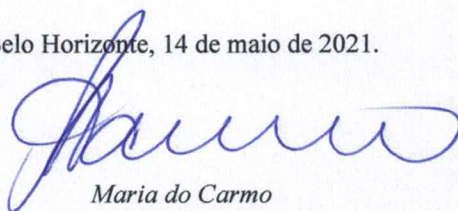 elo Horizonte, 14 de maio de 2021.
Maria do Carmo